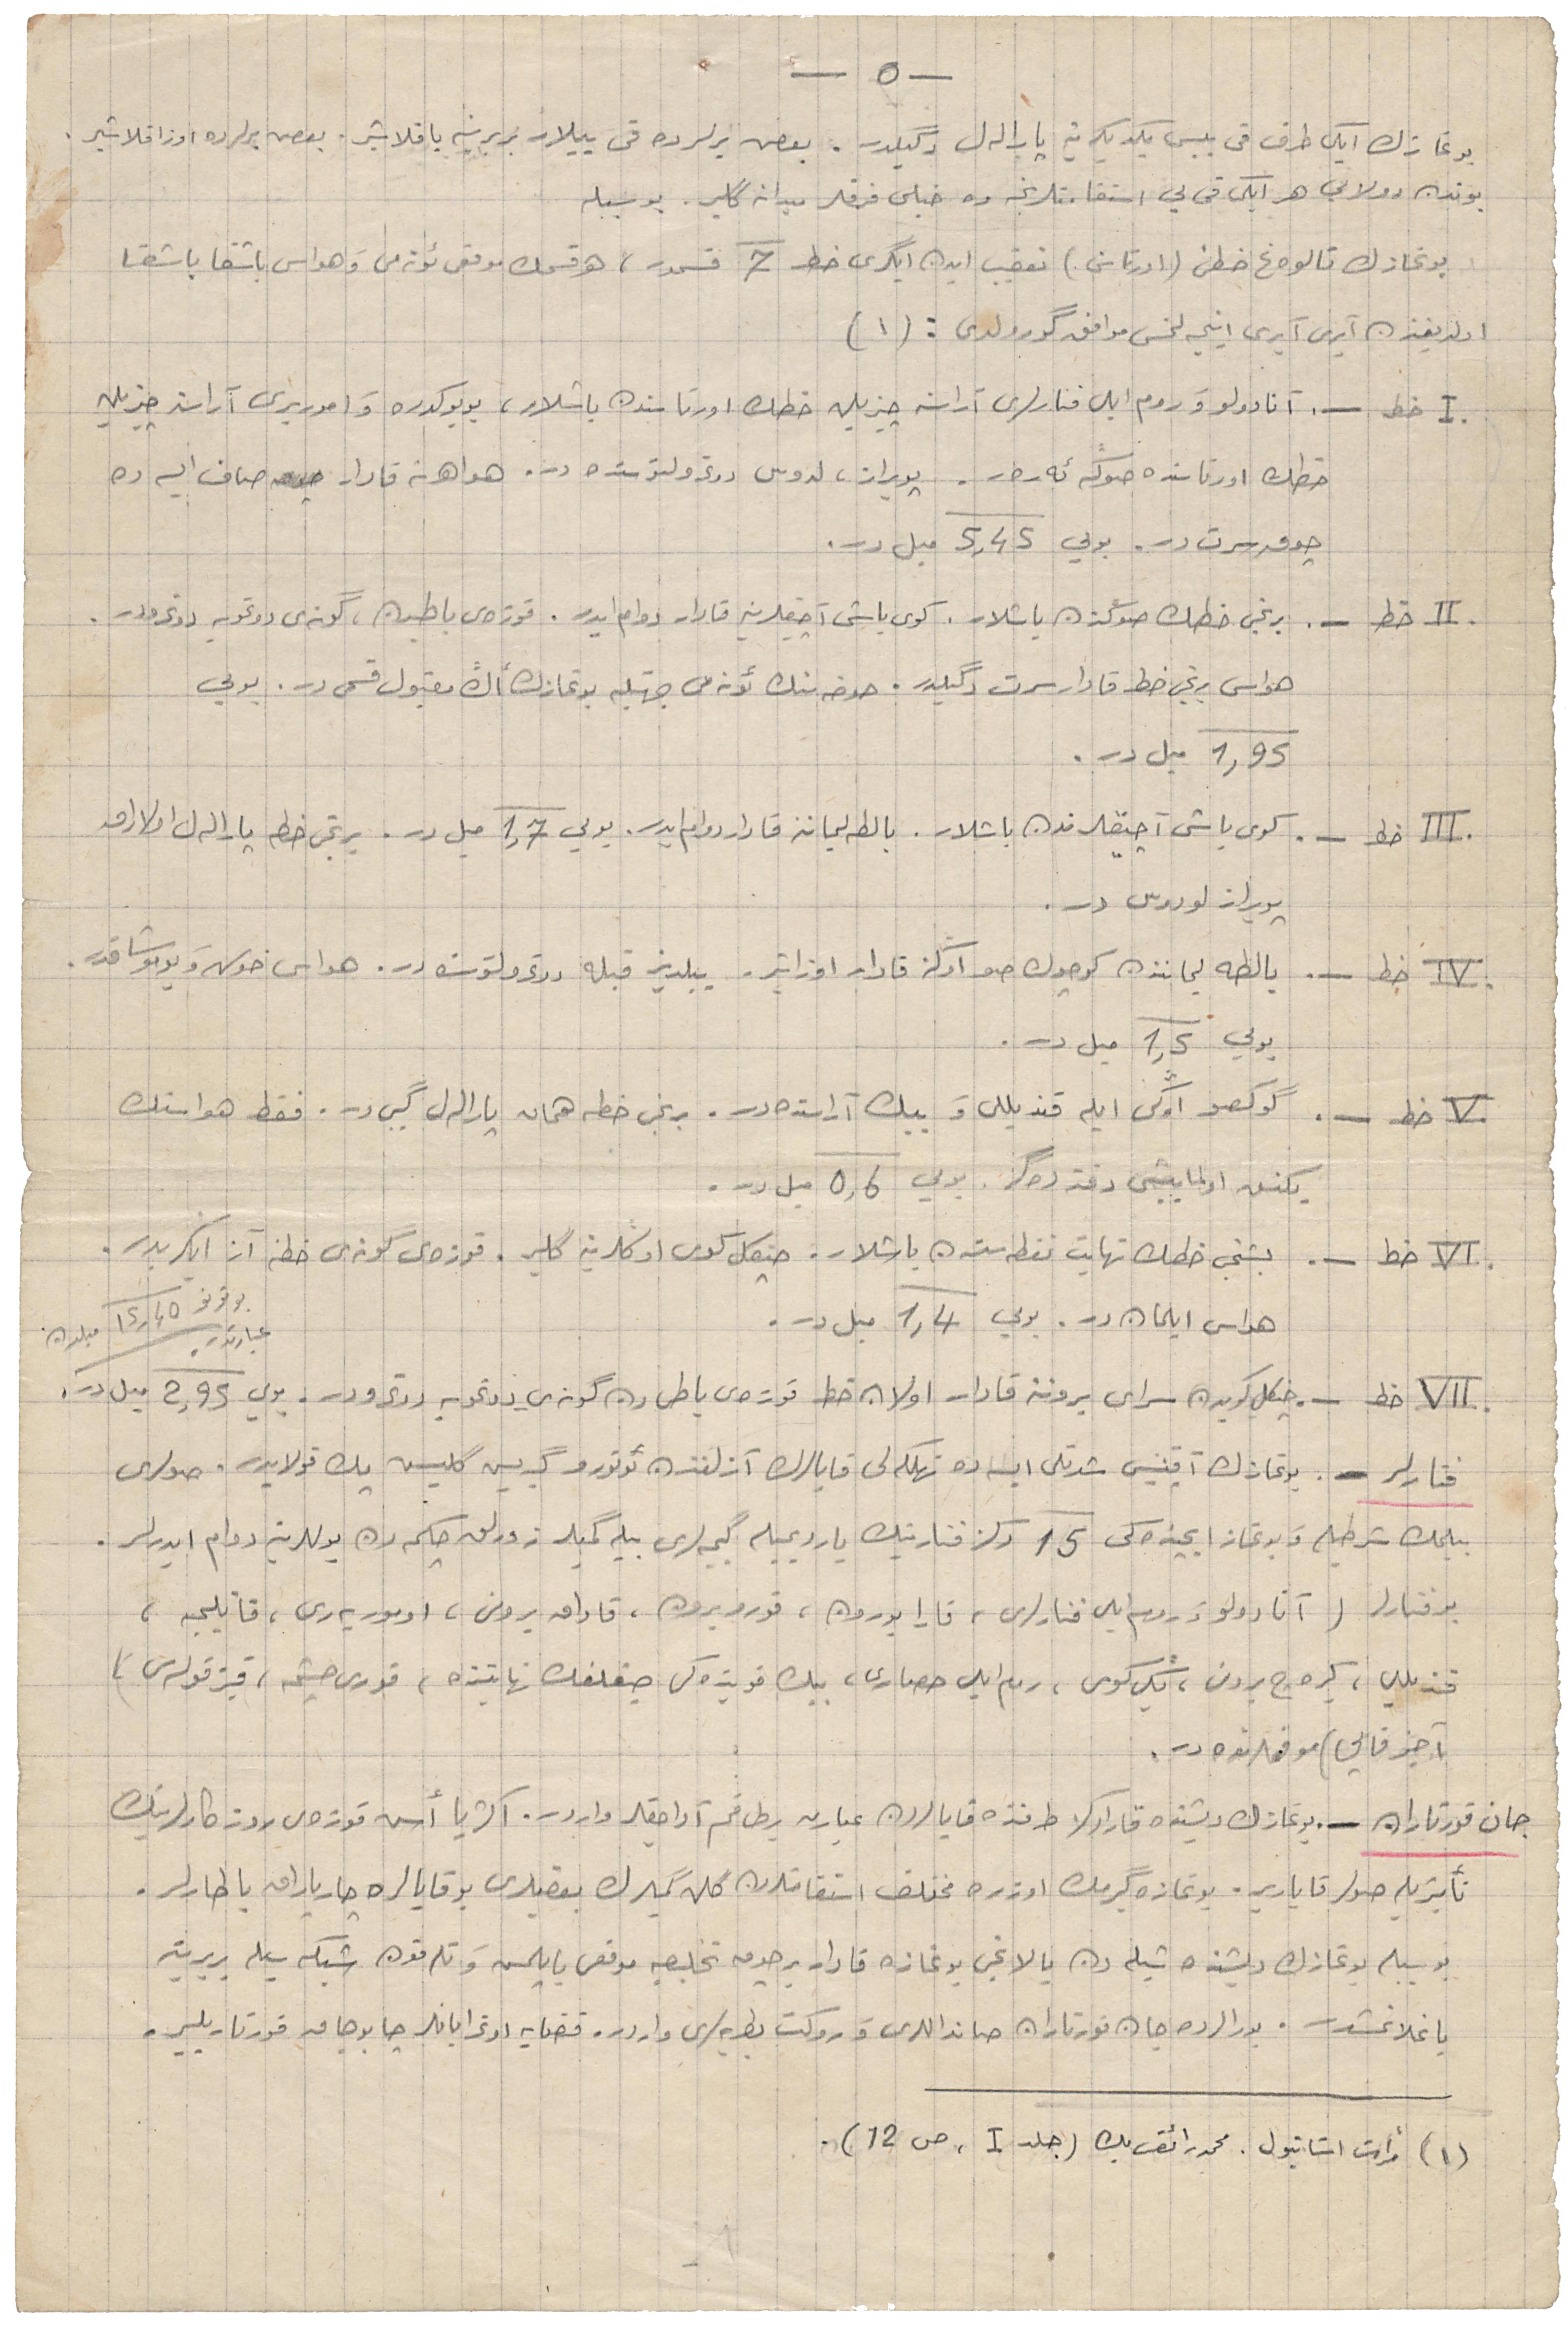 — ٥ —
بوغازك ایكی طرف قی ییسی یكدیكرینه پارالەل دگیلدر . بعض یرلرده قی ییلار بربرینه یاقلاشیر . بعض یرلرده اوزاقلاشیر .
بوندن دولایی هر ایكی قی یی استقامتلرنجه ده خیلی فرقلر میدانه گلیر . بو سببله
بوغازك تالوەغ خطنی (اورتاسنی) تعقیب ایدن ایگری خط 7 قسمدر ، هر قسمك موقعی ئونەمی وَ هواسی باشقا باشقا
اولدیغندن آیری آیری اینجەلنمسی موافق گورولدی : (١)
I. خط —. آنادولو وَ روم ایلی فنارلری آراسنه چیزیلن خطك اورتاسندن باشلار ، بویوكدره وَ اموریری آراسنه چیزیلن
خطك اورتاسنده صوڭه ئەرەر . پویراز ، لدوس دوغرولتوسنده در . هوا هر نه قادار صاف ایسه ده
چوق سرت در . بویی 5,45 میل در .
II. خط —. برنجی خطك صوڭندن باشلار . كوی باشی آچیقلرینه قادار دوام ایدر . قوزەی باطیدن ، گونەی دوغویه دوغرودر .
هواسی برنجی خط قادار سرت دگیلدر . حوضه نك ئونەمی جهتیله بوغازك أڭ مقبول قسمی در . بویی
1,95 میل در .
III. خط —. كوی باشی آچیقلرندن باشلار . بالطه لیماننه قادار دوام ایدر . بویی 1,7 میل در . برنجی خطه پارالەل اولاراق
پویراز لودوس در .
IV. خط —. بالطه لیمانندن كوچوك صو اوڭنه قادار اوزانیر . ییلدیز قبله دوغرولتوسنده در . هواسی خوش وَ یوموشاقدر .
بویی 1,5 میل در .
V. خط —. گوكصو اوڭی ایله قندیللی وَ ببك آراسنده در . برنجی خطه همان پارالەل گیبی در . فقط هواسنك
یكنسق اولمایيشی دقته دەگر . بویی 0,6 میل در .
VI. خط —. بشنجی خطك نهایت نقطه سندن باشلار . چنگل كوی اوڭلرینه گلیر . قوزەی گونەی خطنه آز ایگریدر .
هواسی ایلمان در . بویی 1,4 میل در .
بو قونو 15,45 میلدن
عبارتدر .
VII. خط —. چنگل كویدن سرای بروننه قادار اولان خط قوزەی باطی دن گونەی دوغویه دوغرودر . بویی 2,95 میل در .
فنارلر —. بوغازك آقینتیسی شدتلی ایسه ده تهلكه لی قایالرك آزلغندن ئوتورو گیریس گلیسی پك قولایدر . صولری
بیلمك شرطیله وَ بوغاز ایچنده كی 15 دڭز فنارینك یاردیمیله گیجه لری بیله گمیلر زورلق چكمه دن یوللرینه دوام ایدرلر .
بو فنارلر (آنادولو وَ روم ایلی فنارلری ، قارا بورون ، قورو برون ، قاداق برونی ، اوموریەری ، قانلیجه ،
قندیللی ، كیره ج برونی ، یڭی كوی ، روم ایلی حصاری ، ببك قوینده كی صیغلغك نهایتنده ، قوری چشمه ، قیز قولەسی ،
آخیر قاپی) موقعلرنده در .
جان قورتاران —. بوغازك دیشنده قارادڭز طرفنده قایالردن عبارت بر طاقم آداجقلر واردر . اكثریا أسن قوزەی روزكارلرینك
تأثیریله صولر قاباریر . بوغازه گیرمك اوزره مختلف استقامتلردن گلن گمیلرك بعضیلری بو قایالره چارپاراق باطارلر .
بو سببله بوغازك دیشنده شیله دن یالانجی بوغازه قادار بر چوق تخلیصیه موقعی یاپیلمش وَ تلەفون شبكه سیله بربرینه
باغلانمشدر . بورالرده جان قورتاران صانداللری وَ روكت بطریەلری واردر . قضایه اوغرایانلر چابوجاق قورتاریلیر .
(١) مرأت استانبول . محمد رائف بك (جلد I ، ص 12) .